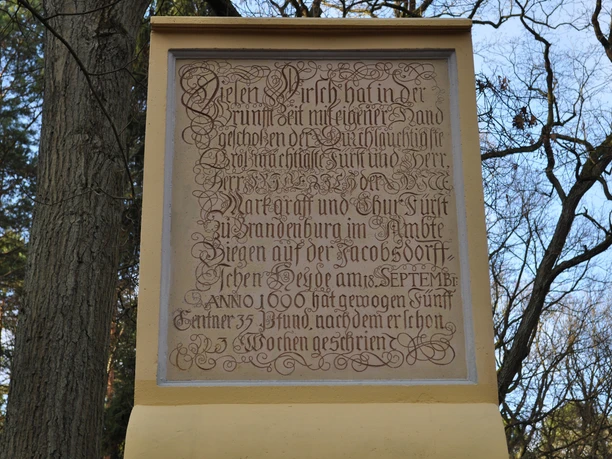 Diesen Hirsch hat in der
Brunfft Zeit mit eigener Hand
geschoßen der Durchlauchtigste
Großmächtigste Fürst und Herr
Herr FRIDERICH der Dritte
Markgraff und Chur Fürst
zu Brandenburg im Ambte
Biegen auf der Jacobsdorff-
schen Heyde am 18. SEPTEMBr
ANNO 1696 hat gewogen Fünff
Centner 35 Pfund, nachdem er schon
3 Wochen geschrien